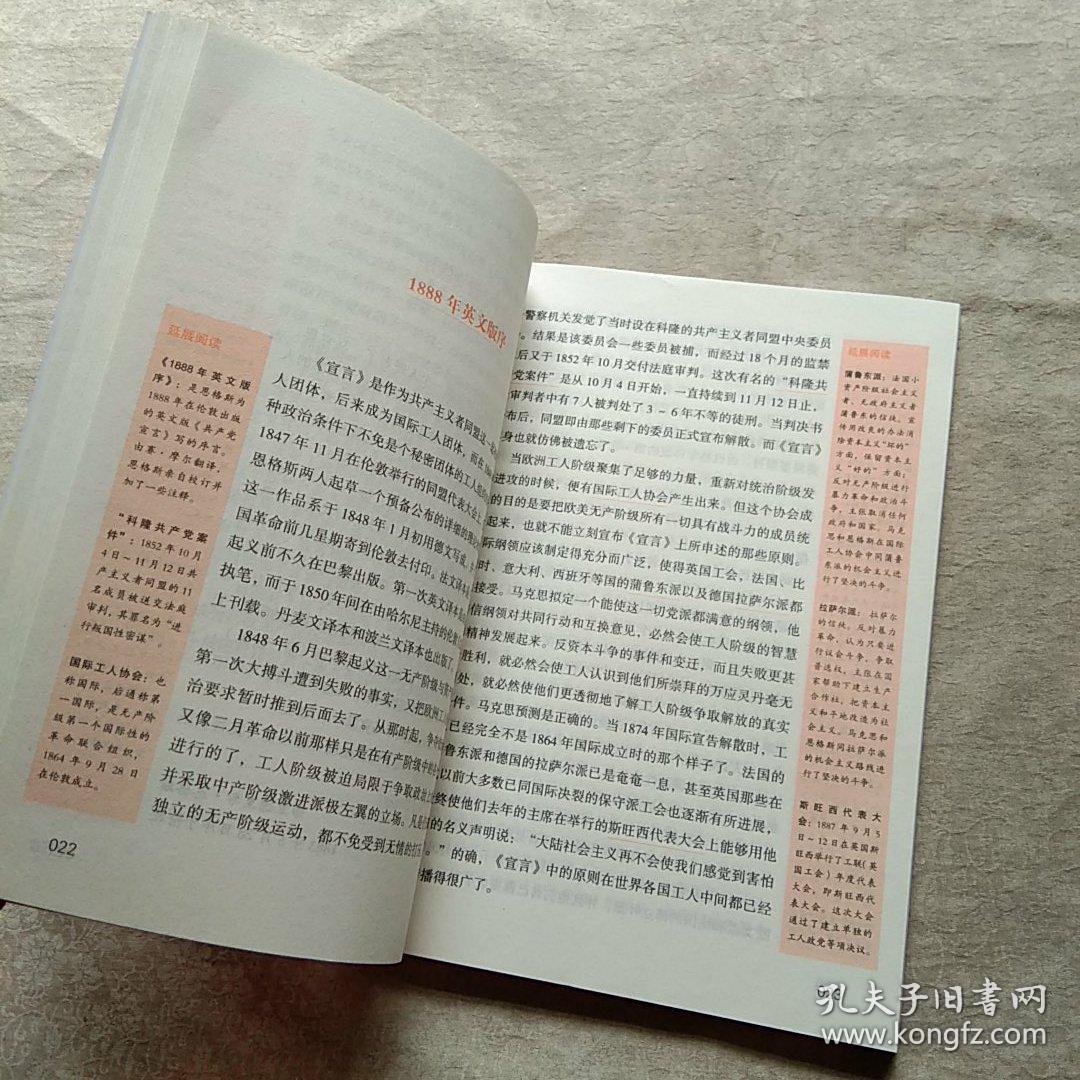 1888年英文版序
延展阅读
《1888年英文版
序》：是恩格斯为
1888年在伦敦出版
的英文版《共产党
宣言》写的序言。
由赛·摩尔翻译，
恩格斯亲自校订并
加了一些注释。
“科隆共产党案
件”：1852年10月
4日～11月12日共
产主义者同盟的11
名成员被送交法庭
审判，其罪名为“进
行叛国性密谋”。
国际工人协会：也
称国际，后通称第
一国际，是无产阶
级第一个国际性的
革命联合组织，
1864年9月28日
在伦敦成立。
《宣言》是作为共产主义者同盟这一
人团体，后来成为国际工人团体，而在
种政治条件下不免是个秘密团体的工人组
1847年11月在伦敦举行的同盟代表大会上
恩格斯两人起草一个预备公布的详细的
这一作品系于1848年1月初用德文写成，
国革命前几星期寄到伦敦去付印。法文译本
起义前不久在巴黎出版。第一次英文译本
执笔，而于1850年间在由哈尔尼主持的伦敦
上刊载。丹麦文译本和波兰文译本也出版了
1848年6月巴黎起义这一无产阶级与资
第一次大搏斗遭到失败的事实，又把欧洲工
治要求暂时推到后面去了。从那时起，争夺
又像二月革命以前那样只是在有产阶级中
进行的了，工人阶级被迫局限于争取政治上
并采取中产阶级激进派极左翼的立场。凡是
独立的无产阶级运动，都不免受到无情的打
022
警察机关发觉了当时设在科隆的共产主义者同盟中央委员
。结果是该委员会一些委员被捕，而经过18个月的监禁
后又于1852年10月交付法庭审判。这次有名的“科隆共
党案件”是从10月4日开始，一直持续到11月12日止，
审判者中有7人被判处了3～6年不等的徒刑。当判决书
布后，同盟即由那些剩下的委员正式宣布解散。而《宣言》
身也就仿佛被遗忘了。
当欧洲工人阶级聚集了足够的力量，重新对统治阶级发
进攻的时候，便有国际工人协会产生出来。但这个协会成
的目的是要把欧美无产阶级所有一切具有战斗力的成员统
起来，也就不能立刻宣布《宣言》上所申述的那些原则。
际纲领应该制定得充分而广泛，使得英国工会，法国、比
时、意大利、西班牙等国的蒲鲁东派以及德国拉萨尔派都
接受。马克思拟定一个能使这一切党派都满意的纲领，他
信纲领对共同行动和互换意见，必然会使工人阶级的智慧
精神发展起来。反资本斗争的事件和变迁，而且失败更甚
胜利，就必然会使工人认识到他们所崇拜的万应灵丹毫无
处，就必然使他们更透彻地了解工人阶级争取解放的真实
件。马克思预测是正确的。当1874年国际宣告解散时，工
已经完全不是1864年国际成立时的那个样子了。法国的
鲁东派和德国的拉萨尔派已是奄奄一息，甚至英国那些在
以前大多数已同国际决裂的保守派工会也逐渐有所进展，
终使他们去年的主席在举行的斯旺西代表大会上能够用他
的名义声明说：“大陆社会主义再不会使我们感觉到害怕
。”的确，《宣言》中的原则在世界各国工人中间都已经
播得很广了。
延展阅读
蒲鲁东派：法国小
资产阶级社会主义
者、无政府主义者
蒲鲁东的信徒。宣
传用改良的办法消
除资本主义“坏的”
方面，保留资本主
义“好的”方面；
反对无产阶级进行
暴力革命和政治斗
争，主张取消任何
政府和国家。马克
思和恩格斯在国际
工人协会中同蒲鲁
东派的机会主义进
行了坚决的斗争。
拉萨尔派：拉萨尔
的信徒。反对暴力
革命，认为只要进
行议会斗争，争取
普选权，主张在国
家帮助下建立生产
合作社，把资本主
义和平地改造为社
会主义。马克思和
恩格斯同拉萨尔派
的机会主义路线进
行了坚决的斗争。
斯旺西代表大
会：1887年9月5
日～12日在英国斯
旺西举行了工联（英
国工会）年度代表
大会，即斯旺西代
表大会。这次大会
通过了建立单独的
工人政党等项决议。
孔夫子旧書网
www.kongfz.com